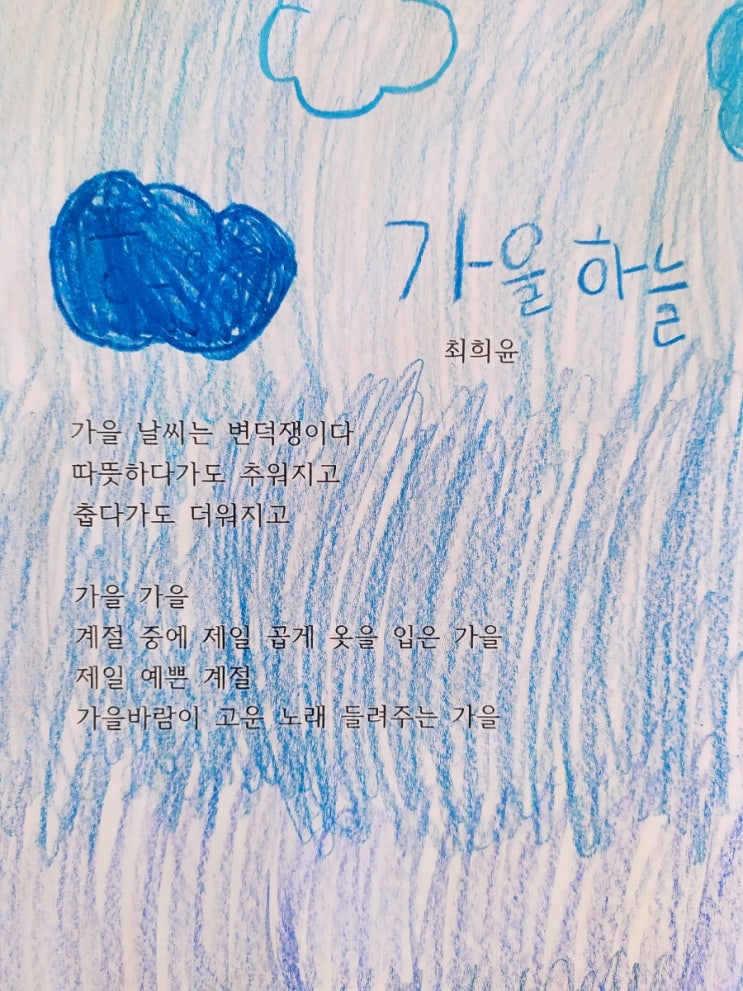 가을 하늘
최희윤
가을 날씨는 변덕쟁이다
따뜻하다가도 추워지고
춥다가도 더워지고
가을 가을
계절 중에 제일 꼽게 옷을 입은 가을
제일 예쁜 계절
가을바람이 고운 노래 들려주는 가을